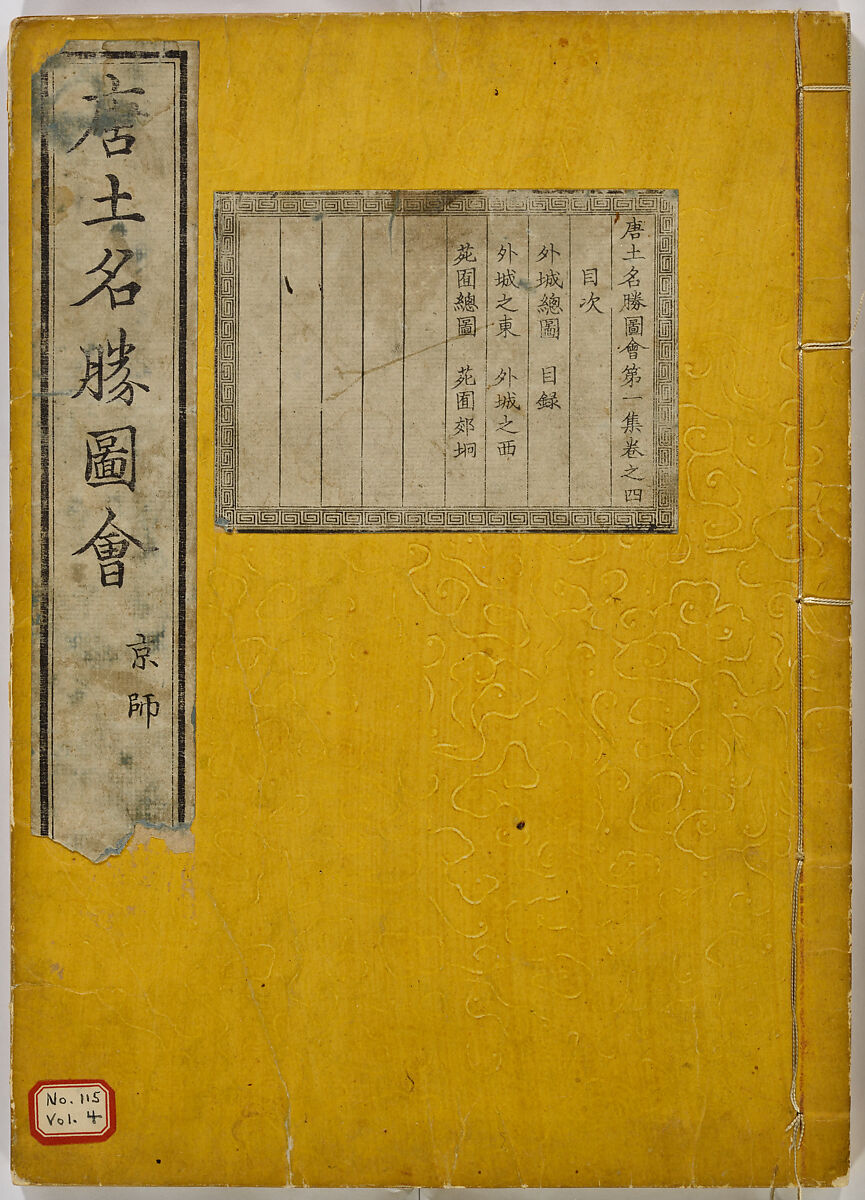 唐土名勝圖會
京師
唐土名勝圖會第一集卷之四
目次
外城總圖 目録
外城之東 外城之西
苑囿總圖 苑囿郊坰
No. 115
Vol. 4